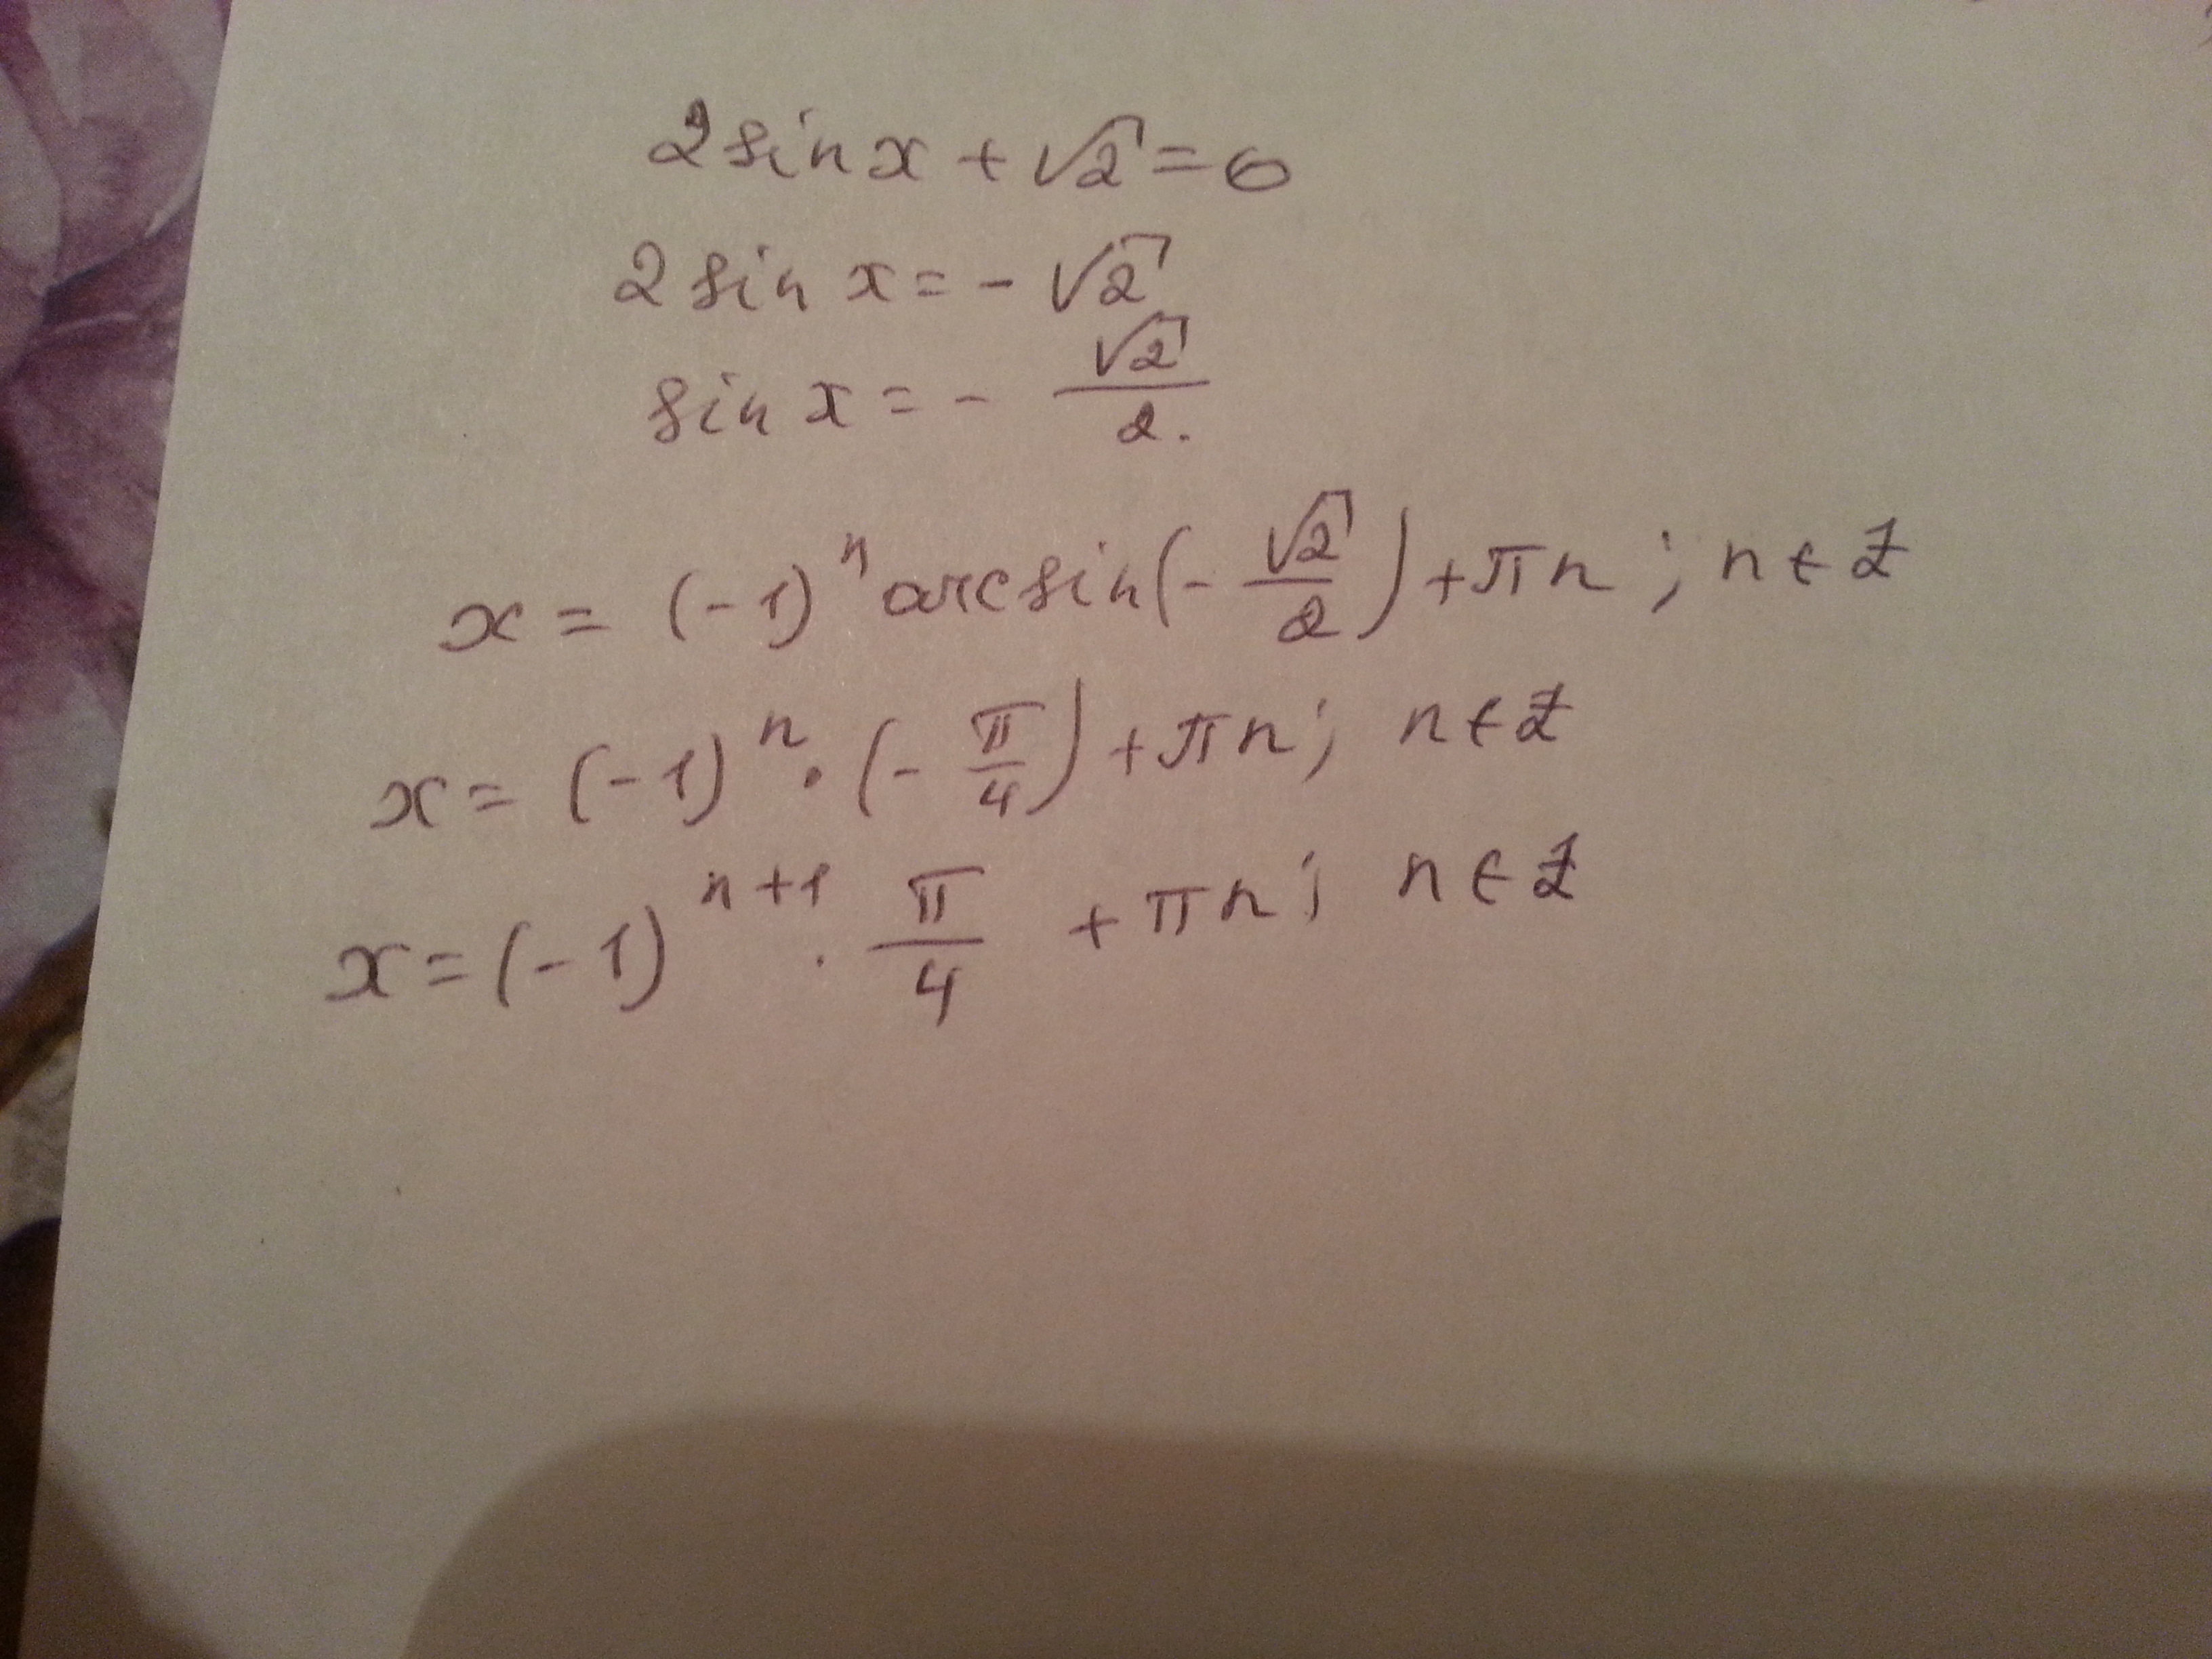 2 sin x + √2 = 0
2 sin x = - √2
sin x = - √2/2.
x = (-1)^n arcsin(- √2/2) + πn; n ∈ Z
x = (-1)^n · (- π/4) + πn; n ∈ Z
x = (-1)^(n+1) · π/4 + πn; n ∈ Z